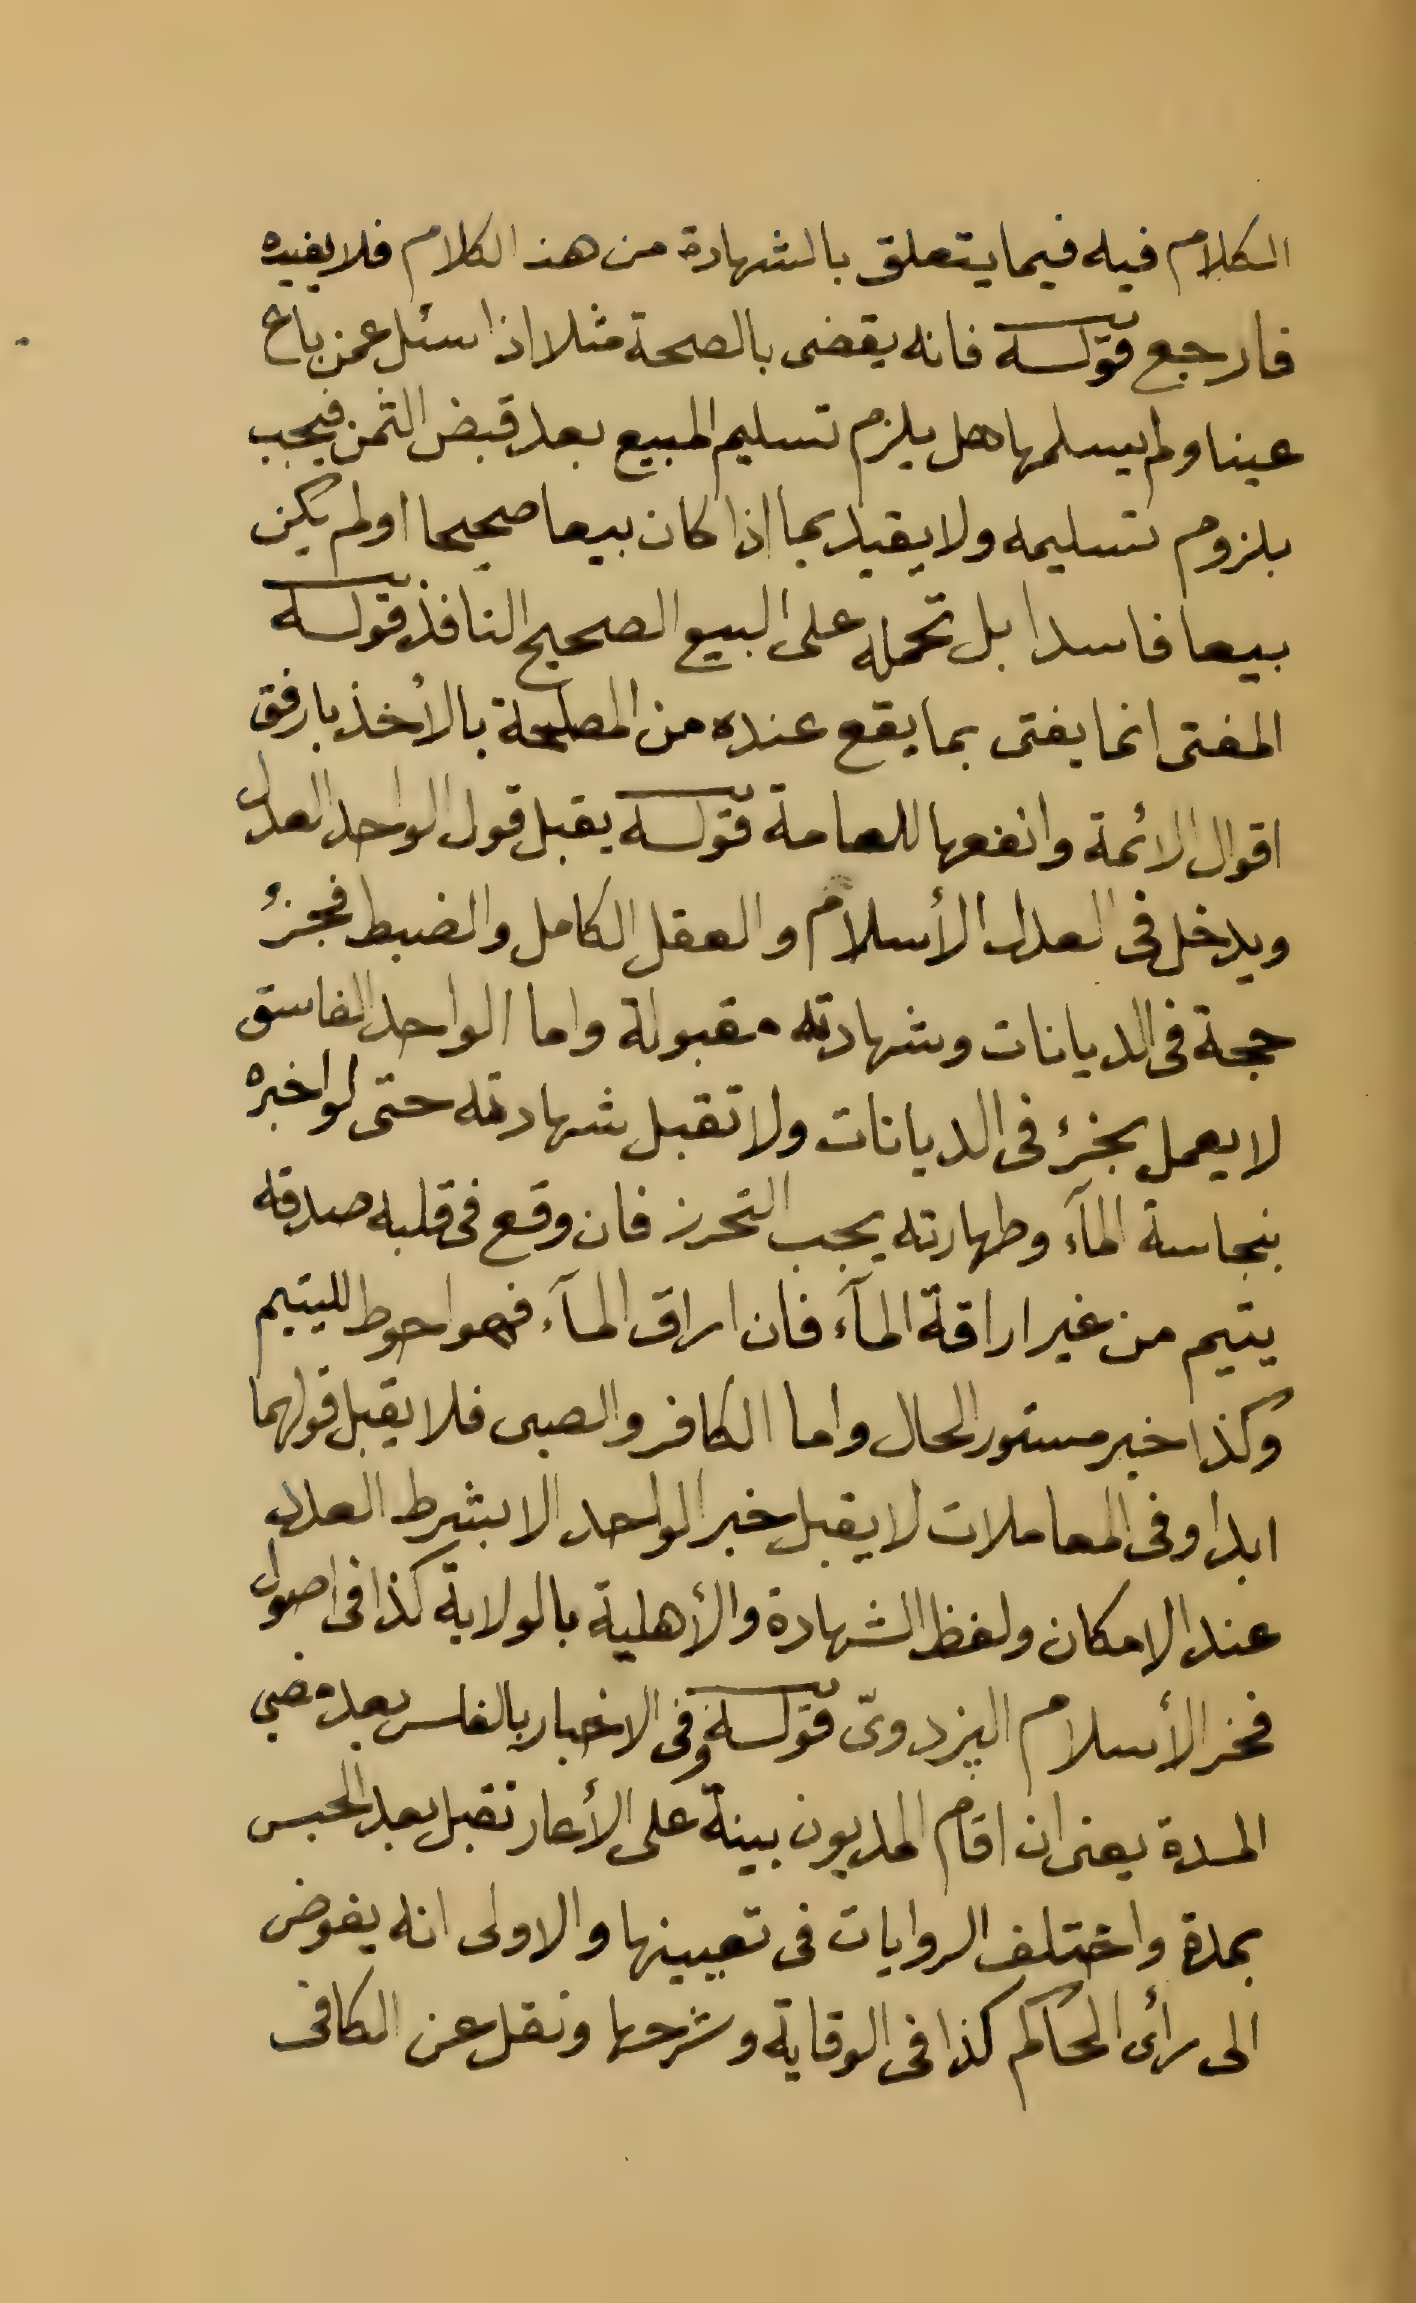 الكلام فيه فيما يتعلق بالشهادة من هذ الكلام فلا يفيده
فارجع قوله فانه يقضى بالصحة مثلا اذا سئل عمن باع
عينا ولم يسلمها هل يلزم تسليم المبيع بعد قبض الثمن فيجب
بلزوم تسليمه ولا يقيد بما اذا كان بيعا صحيحا اولم يكن
بيعا فاسدا بل تحمله على البيع الصحيح النافذ قوله
المفتى انما يفتى بما يقع عنده من المصلحة بالأخذ بارفق
اقوال الائمة وانفعها للعامة قوله يقبل قول الواحد العدل
ويدخل فى العدل الأسلام والعقل الكامل والضبط فخبره
حجة فى الديانات وشهادته مقبولة واما الواحد الفاسق
لا يعمل بخبره فى الديانات ولا تقبل شهادته حتى لواخبره
بنجاسة المآء وطهارته يجب التحرز فان وقع فى قلبه صدقه
يتيم من غير اراقة المآء فان اراق المآء فهو احوط لليتيم
وكذا خبر مستور الحال واما الكافر والصبى فلا يقبل قولهما
ابدا وفى المعاملات لا يقبل خبر الواحد الا بشرط العدل
عند الامكان ولفظ الشهادة والأهلية بالولاية كذا فى اصول
فخر الأسلام البزدوىّ قوله وفى الاخبار بالفلس بعد مضى
المدة يعنى ان اقام المديون بينة على الأعار تقبل بعد الحبس
بمدة واختلف الروايات فى تعيينها والاولى انه يفوض
الى رأى الحاكم كذا فى الوقاية وشرحها ونقل عن الكافى